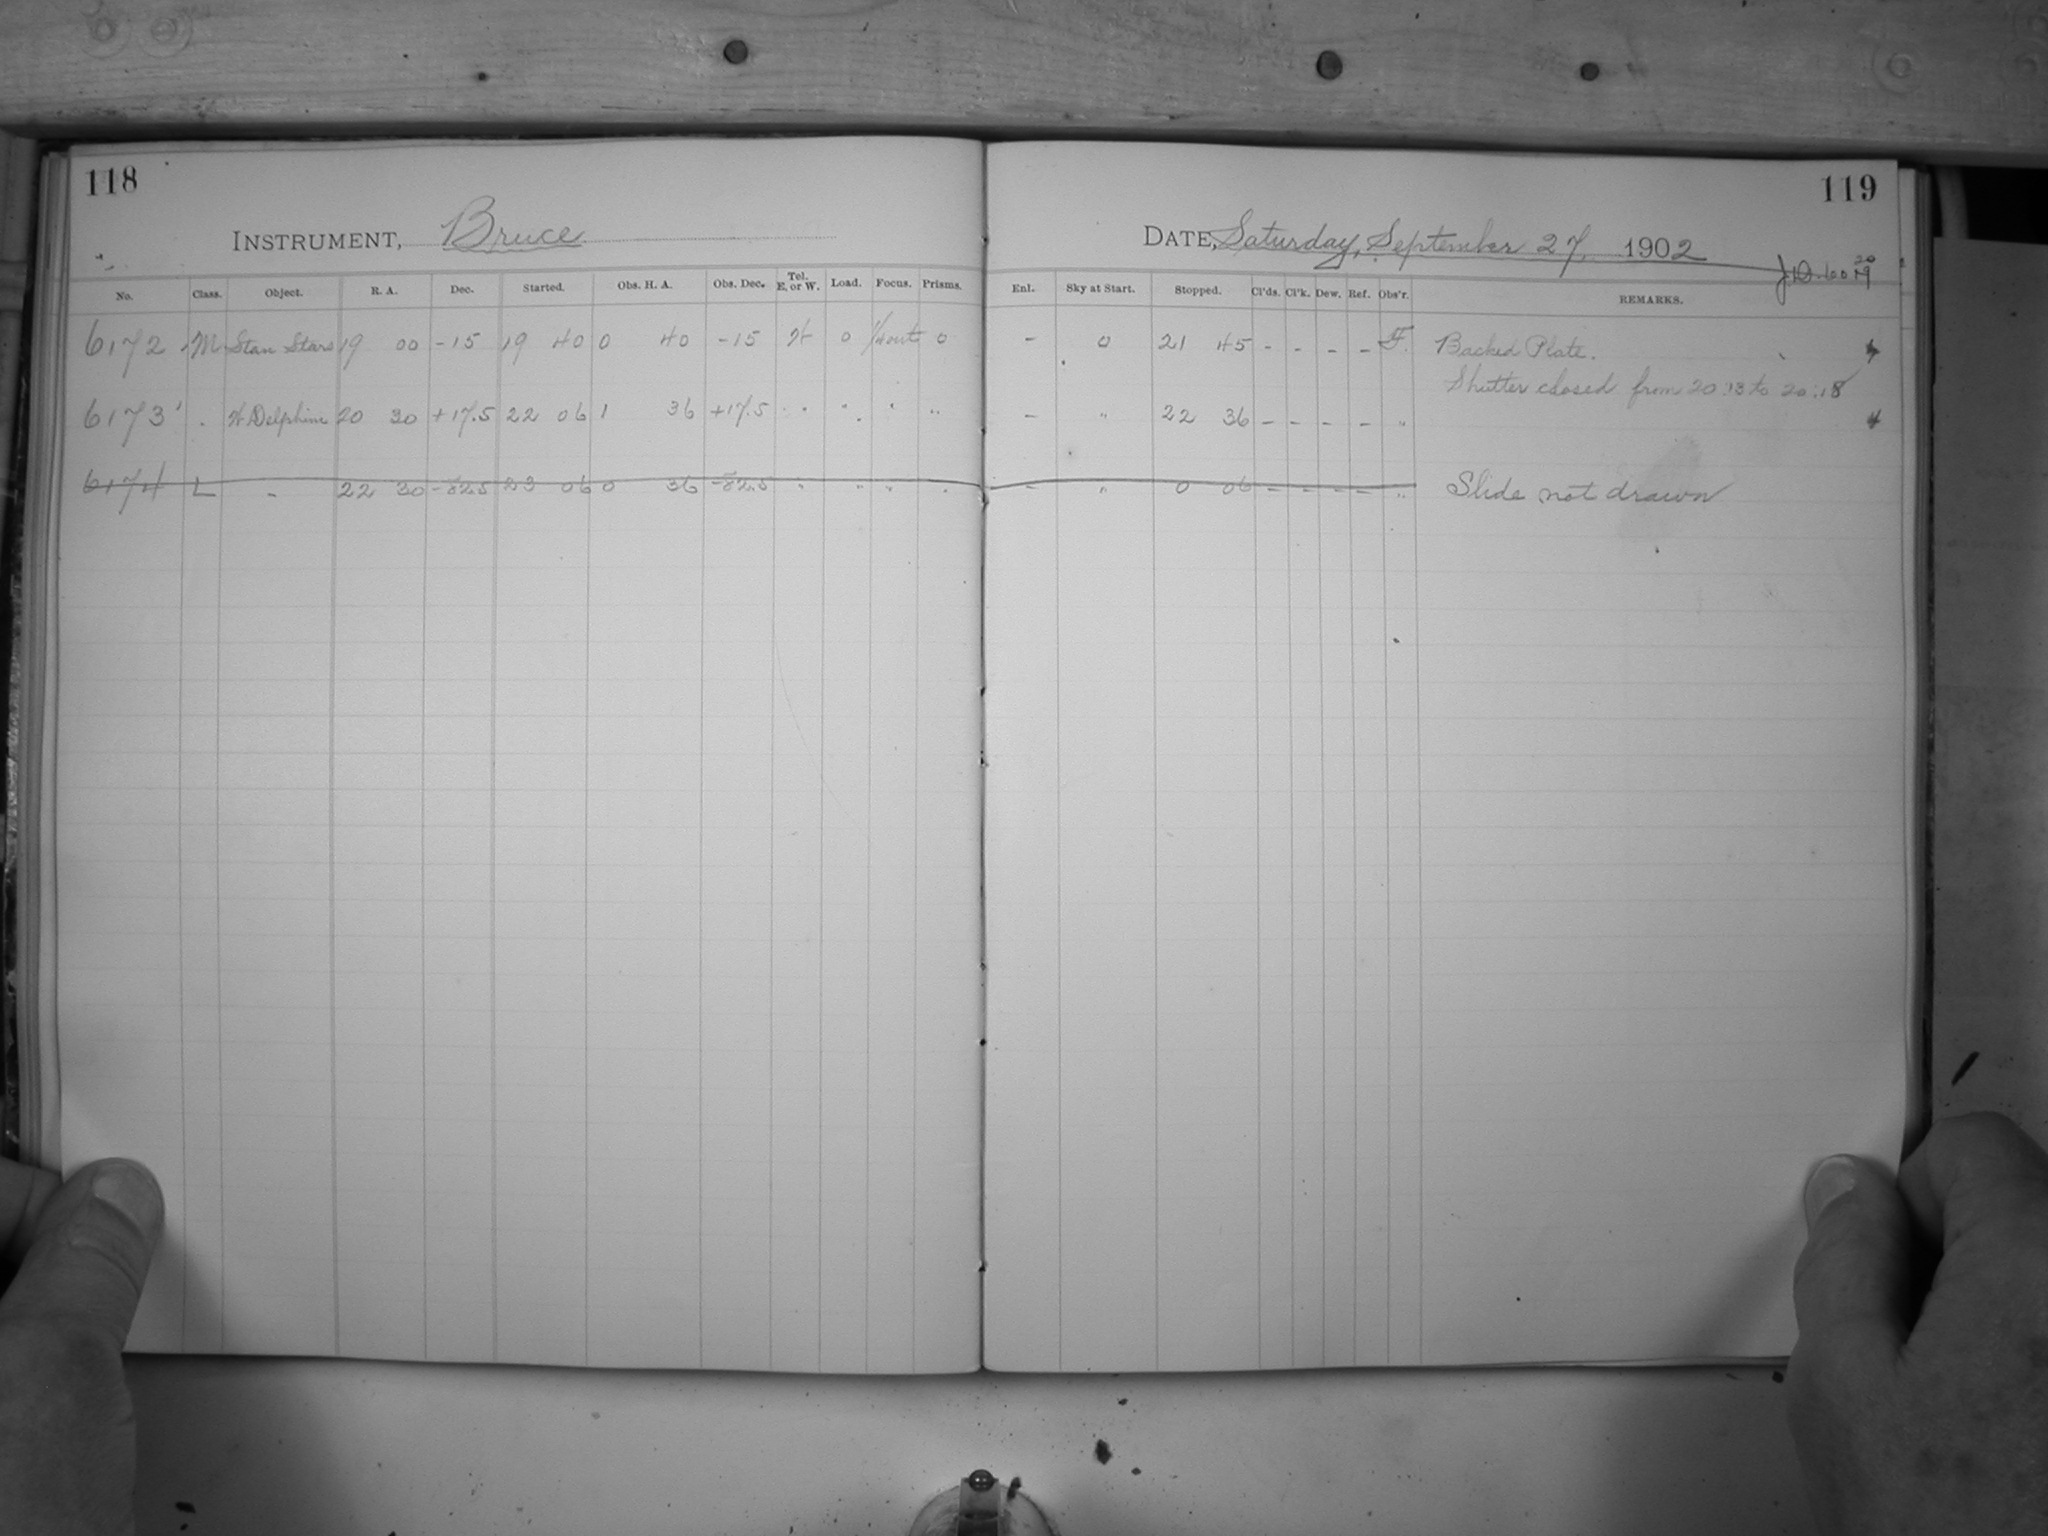 118
INSTRUMENT, Bruce
No. Class. Object. R. A. Dec. Started. Obs. H. A. Obs. Dec. Tel. E. or W. Load. Focus. Prisms.
6172 M Stan Stars 19 00 -15 19 40 0 40 -15 0 0
6173 . W Delphini 20 30 +17.5 22 06 1 36 +17.5 " " " "
6174 L - 22 30 -82.5 23 06 0 36 -82.5 " " " "
119
DATE, Saturday, September 27, 1902
Enl. Sky at Start. Stopped. Cl'ds. Cl'k. Dew. Ref. Obs'r. REMARKS.
- 0 21 45 - - - - F. Backed Plate.
Shutter closed from 20:13 to 20:18
- " 22 36 - - - - "
- " 0 06 - - - - " Slide not drawn